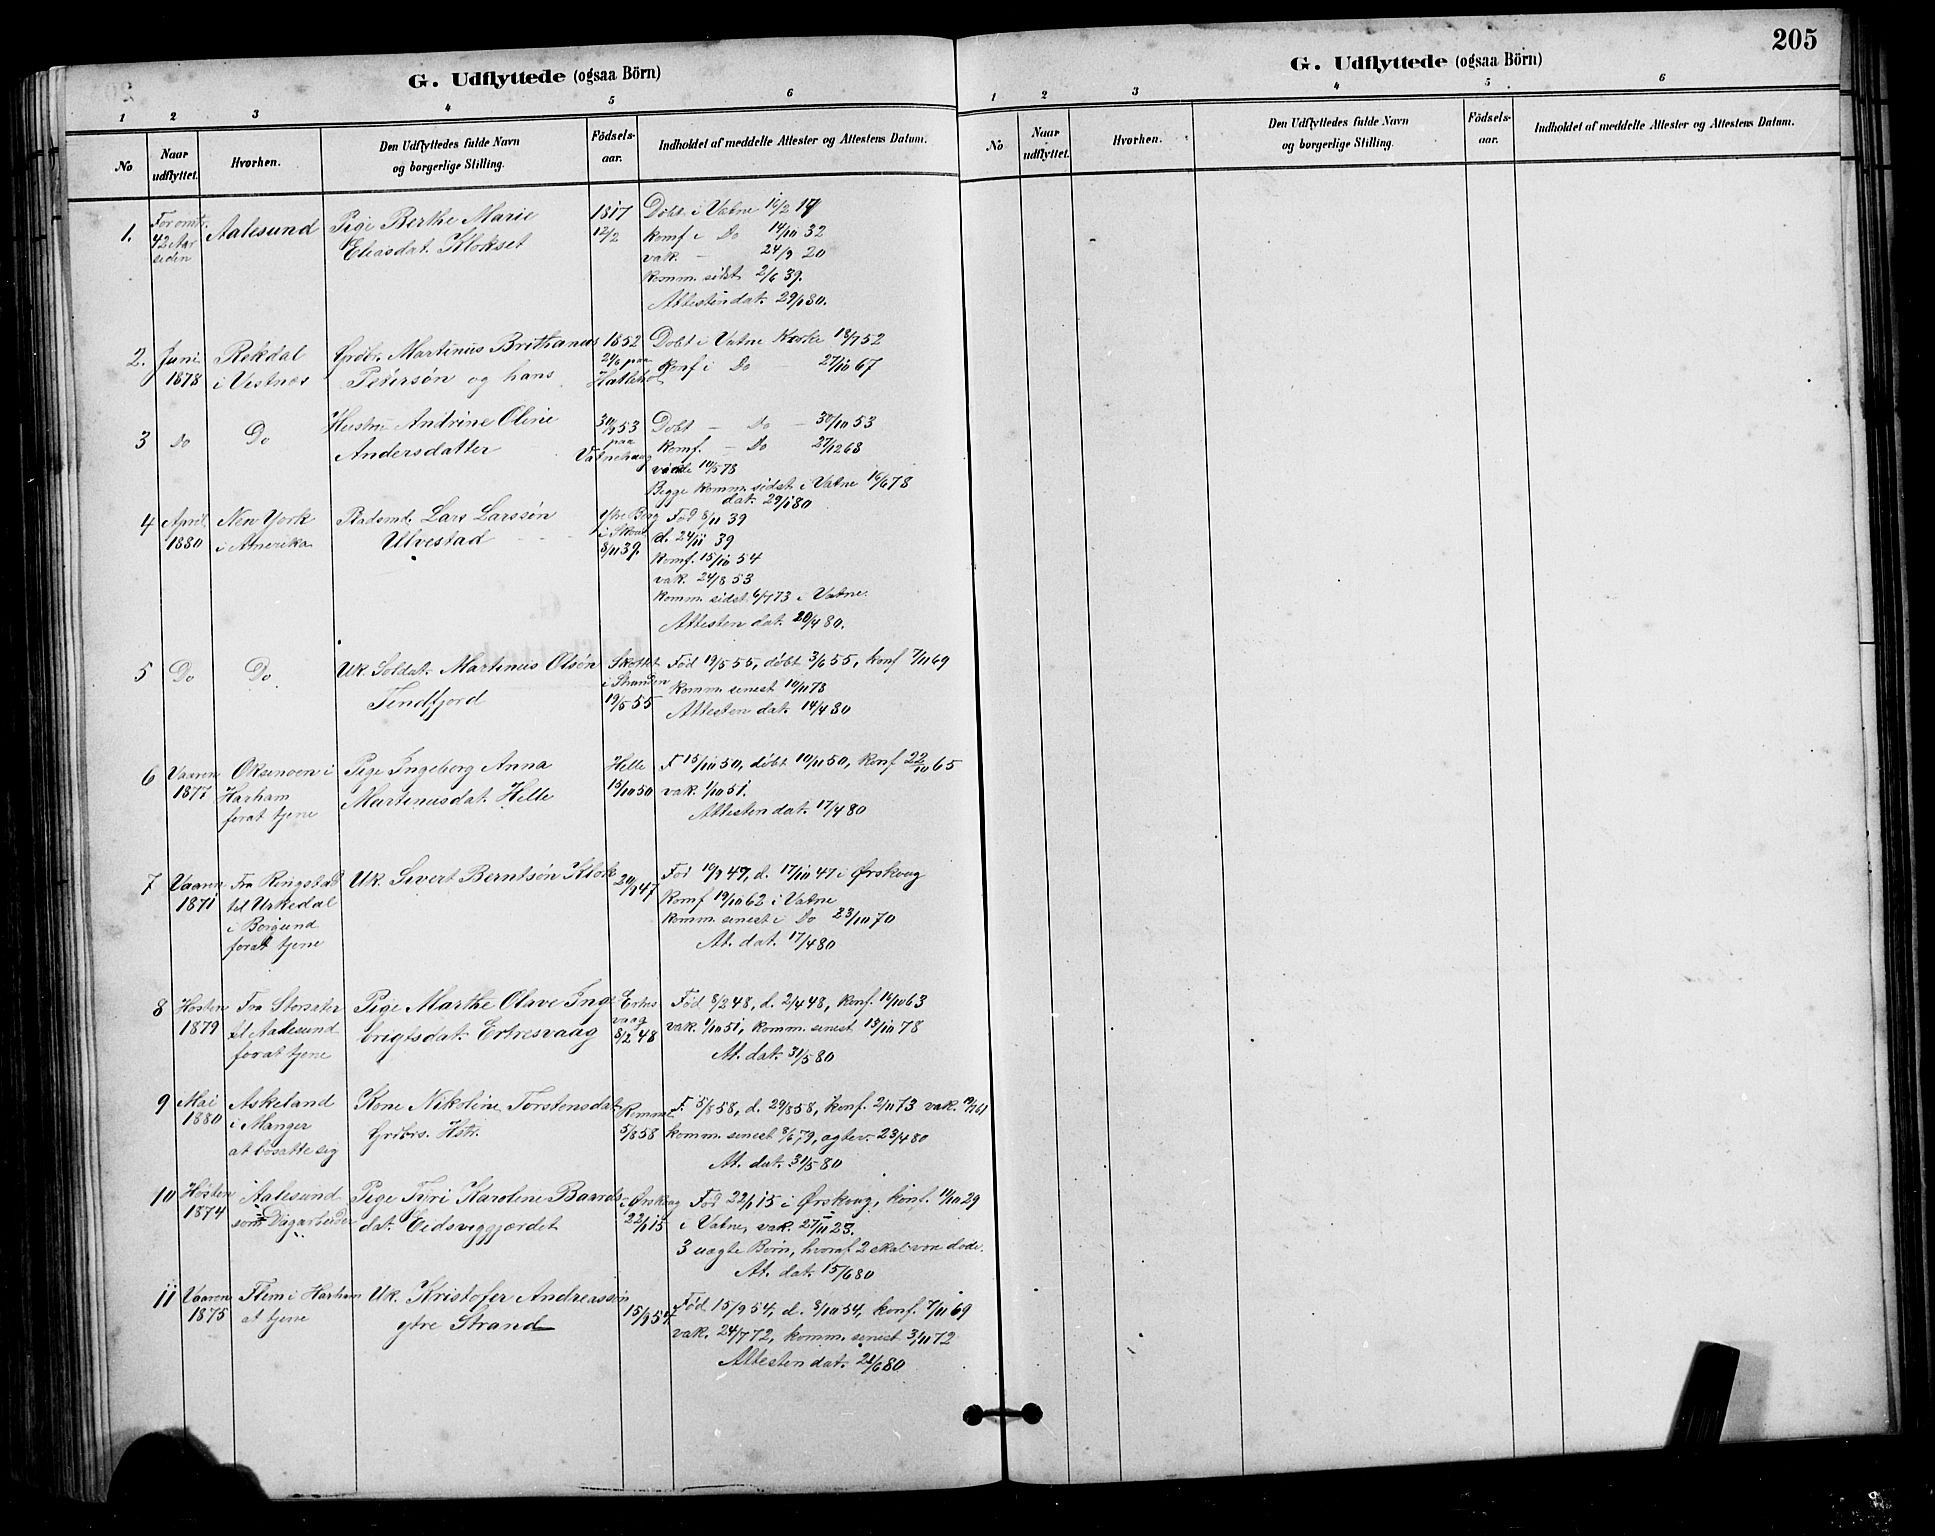 205
G. Udflyttede (ogsaa Börn)
1 2 3 4 5 6
No
Naar udflyttet.
Hvorhen.
Den Udflyttedes fulde Navn og borgerlige Stilling.
Födsels-aar.
Indholdet af meddelte Attester og Attestens Datum.
1.
For omtr.
42 Aar
siden
Aalesund
Pige Berthe Marie
Eliasdat. Klokset
1817
12/2
Døbt i Vatne 16/2 17
Komf i Do 14/10 32
vak. - 24/9 20
Komm. sidst 2/6 39.
Attesten dat. 29/1 80.
2.
Juni
1878
Rekdal
i Vestnes
Grdbr. Martinus Brithanus
Petersøn og hans
1852
24/6 paa
Døbt i Vatne Kirke 18/7 52
Konf i Do - 27/10 67
3
Do
Do
Hustru Andrine Oline
Andersdatter
30/9 53
paa
Vatnehaug
Døbt - Do - 30/10 53
Komf. - Do 27/12 68
10/5 78
Begge komm. sidst i Vatne 16/6 78
dat. 29/1 80
4
April
1880
New York
i Amerika
Lars Larssøn
Ulvestad
Ytre Berg
8/11 39.
Fød 8/11 39
d. 24/11 39
Komf. 15/10 54
vak. 24/8 53
Komm. sidst 6/7 73 i Vatne.
Attesten dat. 20/4 80.
5
Do
Do
Uk. Soldat. Martinus Olsøn
Tindfjord
i Stranden
19/5 55
Fød 19/5 55, døbt 3/6 55, konf 7/11 69
Komm. senest 10/11 78
Attesten dat. 14/4 80
6
Vaaren
1877
Oksenoen i
Harham
forat tjene
Pige Ingeborg Anna
Martinusdat. Helle
Helle
15/10 50
F. 15/10 50, døbt 10/11 50, Konf 22/10 65
vak. 1/10 51.
Attesten dat. 17/4 80
7
Vaaren
1871
Fra Ringstad
til Urkedal
i Borgund
forat tjene
Uk. Sivert Berntsøn Klok
Fød 19/9 47, d. 17/10 47 i Ørskoug
Komf 19/10 62 i Vatne
Komm. senest i Do 23/10 70
At. dat. 17/4 80
8
Høsten
1879
Fra Storsæter
til Aalesund
forat tjene
Pige Marthe Olave Inge
brigtsdat. Erkesvaag
Erkes
vaag
8/2 48
Fød 8/2 48, d. 2/4 48, konf. 16/10 63
vak. 1/10 51, komm. senest 13/10 78
At. dat. 31/5 80
9
Mai
1880
Askeland
i Manger
at bosatte sig
Kone Nikoline Torstensdat
Grdbrs. Hstr.
5/8 58
F. 5/8 58, d. 29/8 58, konf. 2/11 73 vak.
komm. senest 8/6 79, agtev. 23/4 80
At. dat. 31/5 80
10
Høsten
1874
Aalesund
som Dagarbeider
Pige Tyri Karoline Baards
dat. Eidsviggjærdet
i Ørskoug
22/1 15
Fød 22/1 15 i Ørskoug, konf. 11/10 29
i Vatne, vak. 27/11 23.
3 uægte Børn, hvoraf 2 skal vær døde.
At. dat. 15/6 80
11
Vaaren
1875
Flem i Harham
at tjene
Uk. Kristofer Andreassøn
ytre Strand
15/9 54
Fød 15/9 54, d. 8/10 54, konf. 7/11 69
vak. 24/7 72, komm. senest 3/11 72
Attesten dat. 21/6 80
G. Udflyttede (ogsaa Börn)
1 2 3 4 5 6
No
Naar udflyttet.
Hvorhen.
Den Udflyttedes fulde Navn og borgerlige Stilling.
Födsels-aar.
Indholdet af meddelte Attester og Attestens Datum.